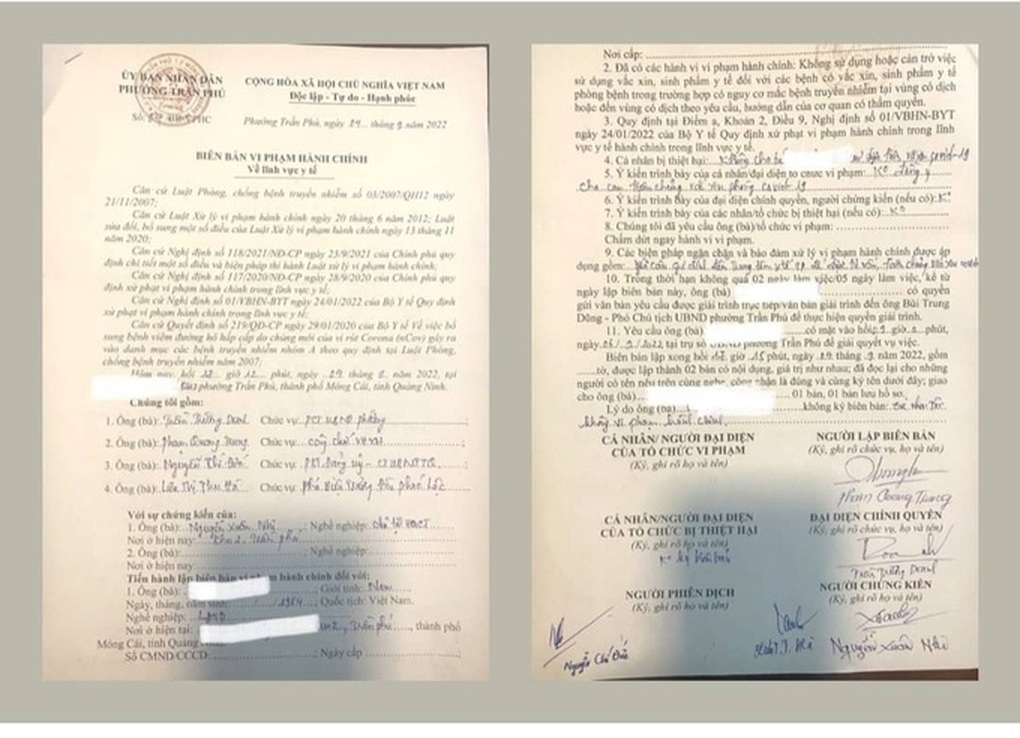 ỦY BAN NHÂN DÂN
PHƯỜNG TRẦN PHÚ
CỘNG HÒA XÃ HỘI CHỦ NGHĨA VIỆT NAM
Độc lập - Tự do - Hạnh phúc
Phường Trần Phú, ngày 29 tháng 8 năm 2022
BIÊN BẢN VI PHẠM HÀNH CHÍNH
Về lĩnh vực y tế
Căn cứ Luật Phòng, chống bệnh truyền nhiễm số 03/2007/QH12 ngày
21/11/2007;
Căn cứ Luật Xử lý vi phạm hành chính ngày 20 tháng 6 năm 2012; Luật
sửa đổi, bổ sung một số điều của Luật Xử lý vi phạm hành chính ngày 13 tháng 11
năm 2020;
Căn cứ Nghị định số 118/2021/NĐ-CP ngày 23/9/2021 của Chính phủ quy
định chi tiết một số điều và biện pháp thi hành Luật xử lý vi phạm hành chính;
Căn cứ Nghị định số 117/2020/NĐ-CP ngày 28/9/2020 của Chính phủ quy
định xử phạt vi phạm hành chính trong lĩnh vực y tế;
Căn cứ Nghị định số 01/VBHN-BYT ngày 24/01/2022 của Bộ Y tế Quy định
xử phạt vi phạm hành chính trong lĩnh vực y tế;
Căn cứ Quyết định số 219/QĐ-CP ngày 29/01/2020 của Bộ Y tế Về việc bổ
sung bệnh viêm đường hô hấp cấp do chủng mới của vi rút Corona (nCov) gây ra
vào danh mục các bệnh truyền nhiễm nhóm A theo quy định tại Luật Phòng,
chống bệnh truyền nhiễm năm 2007;
Hôm nay, hồi giờ phút, ngày 29 tháng 8 năm 2022, tại
phường Trần Phú, thành phố Móng Cái, tỉnh Quảng Ninh.
Chúng tôi gồm:
1. Ông (bà): Chức vụ: PCT UBND phường
2. Ông (bà): Phạm Quang Trung Chức vụ:
3. Ông (bà): Nguyễn Chí Chức vụ:
4. Ông (bà): Chức vụ:
Với sự chứng kiến của:
1. Ông (bà): Nguyễn Xuân Nhị ; Nghề nghiệp:
Nơi ở hiện nay: Khu 2, Trần Phú
2. Ông (bà): ; Nghề nghiệp:
Nơi ở hiện nay:
Tiến hành lập biên bản hành chính đối với:
1. Ông (bà): ; Giới tính: Nam
Ngày, tháng, năm sinh: / /1984 ; Quốc tịch: Việt Nam.
Nghề nghiệp:
Nơi ở hiện tại: 2, Trần Phú, thành phố
Móng Cái, tỉnh Quảng
Số CMND/CCCD: ; Ngày cấp
Nơi cấp:
2. Đã có các hành vi vi phạm hành chính: Không sử dụng hoặc cản trở việc
sử dụng vắc xin, sinh phẩm y tế đối với các bệnh có vắc xin, sinh phẩm y tế
phòng bệnh trong trường hợp có nguy cơ mắc bệnh truyền nhiễm tại vùng có dịch
hoặc đến vùng có dịch theo yêu cầu, hướng dẫn của cơ quan có thẩm quyền.
3. Quy định tại Điểm a, Khoản 2, Điều 9, Nghị định số 01/VBHN-BYT
ngày 24/01/2022 của Bộ Y tế Quy định xử phạt vi phạm hành chính trong lĩnh
vực y tế hành chính trong lĩnh vực y tế.
4. Cá nhân bị thiệt hại: Không cho covid 19
5. Ý kiến trình bày của cá nhân/đại diện tổ chức vi phạm: Ko đồng ý
cho con tiêm chủng vắc xin phòng covid 19
6. Ý kiến trình bày của đại diện chính quyền, người chứng kiến (nếu có): Ko
7. Ý kiến trình bày của các nhân/tổ chức bị thiệt hại (nếu có): Ko
8. Chúng tôi đã yêu cầu ông (bà)/tổ chức vi phạm:
Chấm dứt ngay hành vi vi phạm.
9. Các biện pháp ngăn chặn và bảo đảm xử lý vi phạm hành chính được áp
dụng gồm:
10. Trong thời hạn không quá 02 ngày làm việc/05 ngày làm việc, kể từ
ngày lập biên bản này, ông (bà) có quyền
gửi văn bản yêu cầu được giải trình trực tiếp/văn bản giải trình đến ông Bùi Trung
Dũng - Phó Chủ tịch UBND phường Trần Phú để thực hiện quyền giải trình.
11. Yêu cầu ông (bà) có mặt vào hồi giờ phút,
ngày /2022, tại trụ sở UBND phường Trần Phú để giải quyết vụ việc.
Biên bản lập xong hồi giờ 15 phút, ngày 29 tháng 8 năm 2022, gồm
tờ, được lập thành 02 bản có nội dung, giá trị như nhau; đã đọc lại cho những
người có tên nêu trên cùng nghe, công nhận là đúng và cùng ký tên dưới đây; giao
cho ông (bà) 01 bản, 01 bản lưu hồ sơ.
Lý do ông (bà) không ký biên bản:
không vi phạm hành chính.
CÁ NHÂN/ NGƯỜI ĐẠI DIỆN
CỦA TỔ CHỨC VI PHẠM
(Ký, ghi rõ họ và tên)
NGƯỜI LẬP BIÊN BẢN
(Ký, ghi rõ họ và tên)
Phạm Quang Trung
CÁ NHÂN/NGƯỜI ĐẠI DIỆN
CỦA TỔ CHỨC BỊ THIỆT HẠI
(Ký, ghi rõ họ và tên)
Ko ký biên bản
ĐẠI DIỆN CHÍNH QUYỀN
(Ký, ghi rõ chức vụ, họ và tên)
NGƯỜI PHIÊN DỊCH
(Ký, ghi rõ họ và tên)
NGƯỜI CHỨNG KIẾN
(Ký, ghi rõ họ và tên)
Nguyễn Xuân Nhị